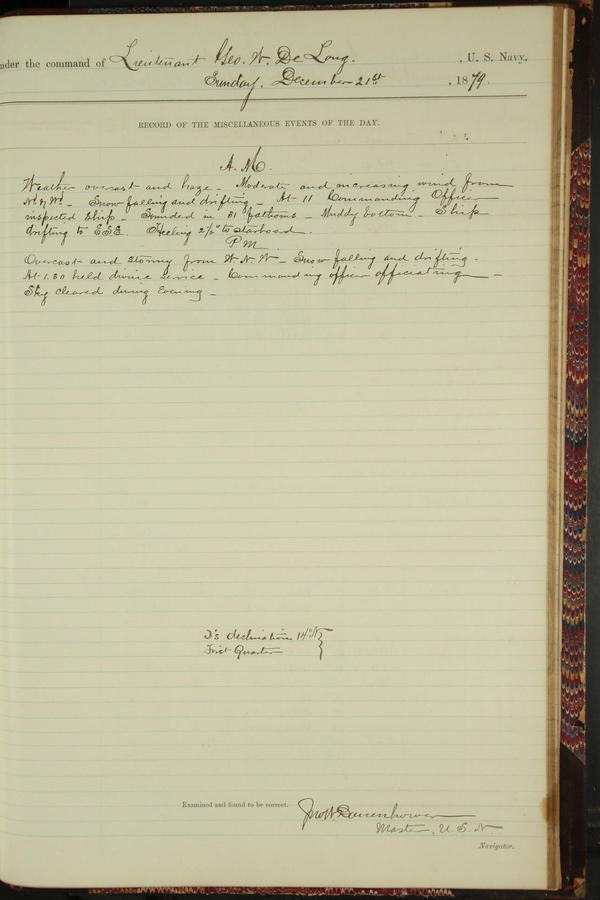 nder the command of Lieutenant Geo. W. De Long. , U. S. Navy.
Sunday, December 21st , 1879.
RECORD OF THE MISCELLANEOUS EVENTS OF THE DAY.
A. M.
Weather overcast and haze - Moderate and increasing wind from
N & Wd - Snow falling and drifting - At 11 Commanding Officer
inspected Ship - Sounded in 31 fathoms - Muddy bottom - Ship
drifting to ESE. Heeling 2½° to starboard.
P M
Overcast and stormy from W. N. W - Snow falling and drifting -
At 1.30 held divine service - Commanding officer officiating -
Sky cleared during Evening -
☽'s declination 14° N }
First Quarter
Examined and found to be correct. Jno W Danenhower
Master, U. S. N.
Navigator.